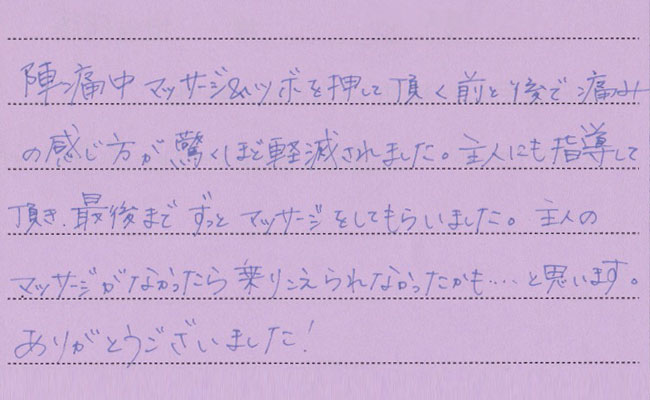 陣痛中マッサージ&ツボを押して頂く前と後で痛み
の感じ方が驚くほど軽減されました。主人にも指導して
頂き、最後までずっとマッサージをしてもらいました。主人の
マッサージがなかったら乗りこえられなかったかも‥‥と思います。
ありがとうございました!